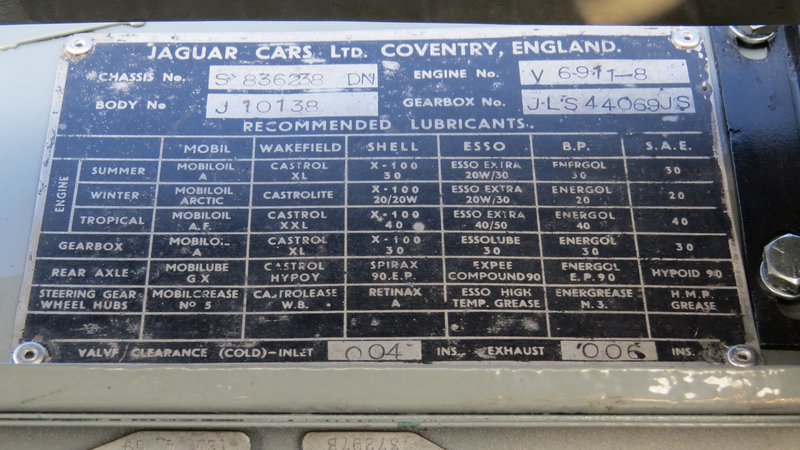 JAGUAR CARS LTD. COVENTRY, ENGLAND.
CHASSIS No. S 836238 DN ENGINE No. V 6911-8
BODY No J 10138 GEARBOX No. J.L.S 44069JS
RECOMMENDED LUBRICANTS.
MOBIL WAKEFIELD SHELL ESSO B.P. S.A.E.
ENGINE
SUMMER MOBILOIL A CASTROL XL X-100 30 ESSO EXTRA 20W/30 ENERGOL 30 30
WINTER MOBILOIL ARCTIC CASTROLITE X-100 20/20W ESSO EXTRA 20W/30 ENERGOL 20 20
TROPICAL MOBILOIL A.F. CASTROL XXL X-100 40 ESSO EXTRA 40/50 ENERGOL 40 40
GEARBOX MOBILOIL A CASTROL XL X-100 30 ESSOLUBE 30 ENERGOL 30 30
REAR AXLE MOBILUBE GX CASTROL HYPOY SPIRAX 90.E.P. EXPEE COMPOUND 90 ENERGOL E.P.90 HYPOID 90
STEERING GEAR WHEEL HUBS MOBILGREASE No 5 CASTROLEASE W.B. RETINAX A ESSO HIGH TEMP. GREASE ENERGREASE N.3. H.M.P. GREASE
VALVE CLEARANCE (COLD)-INLET 004 INS. EXHAUST 006 INS.